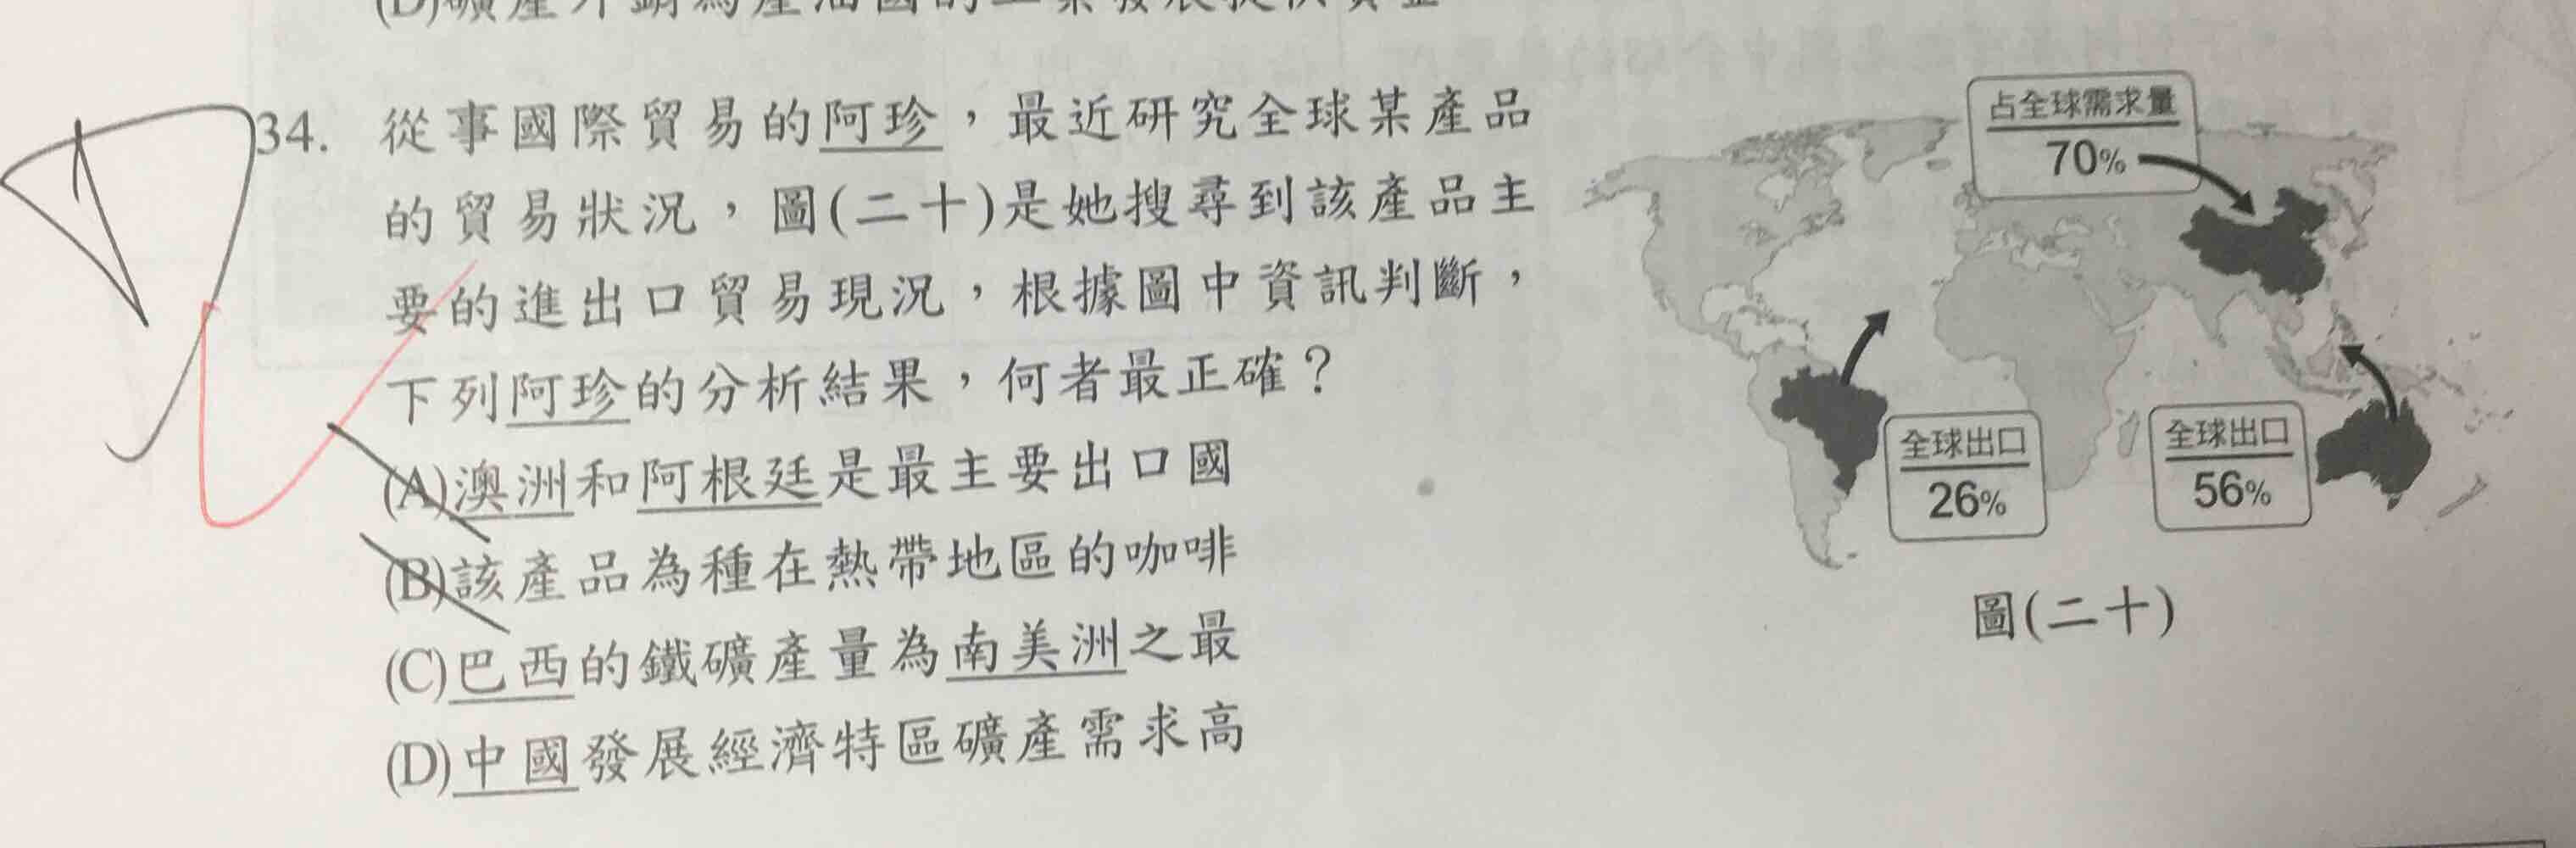 34. 從事國際貿易的阿珍，最近研究全球某產品
的貿易狀況，圖(二十)是她搜尋到該產品主
要的進出口貿易現況，根據圖中資訊判斷，
下列阿珍的分析結果，何者最正確？
(A)澳洲和阿根廷是最主要出口國
(B)該產品為種在熱帶地區的咖啡
(C)巴西的鐵礦產量為南美洲之最
(D)中國發展經濟特區礦產需求高
占全球需求量
70%
全球出口
26%
全球出口
56%
圖(二十)